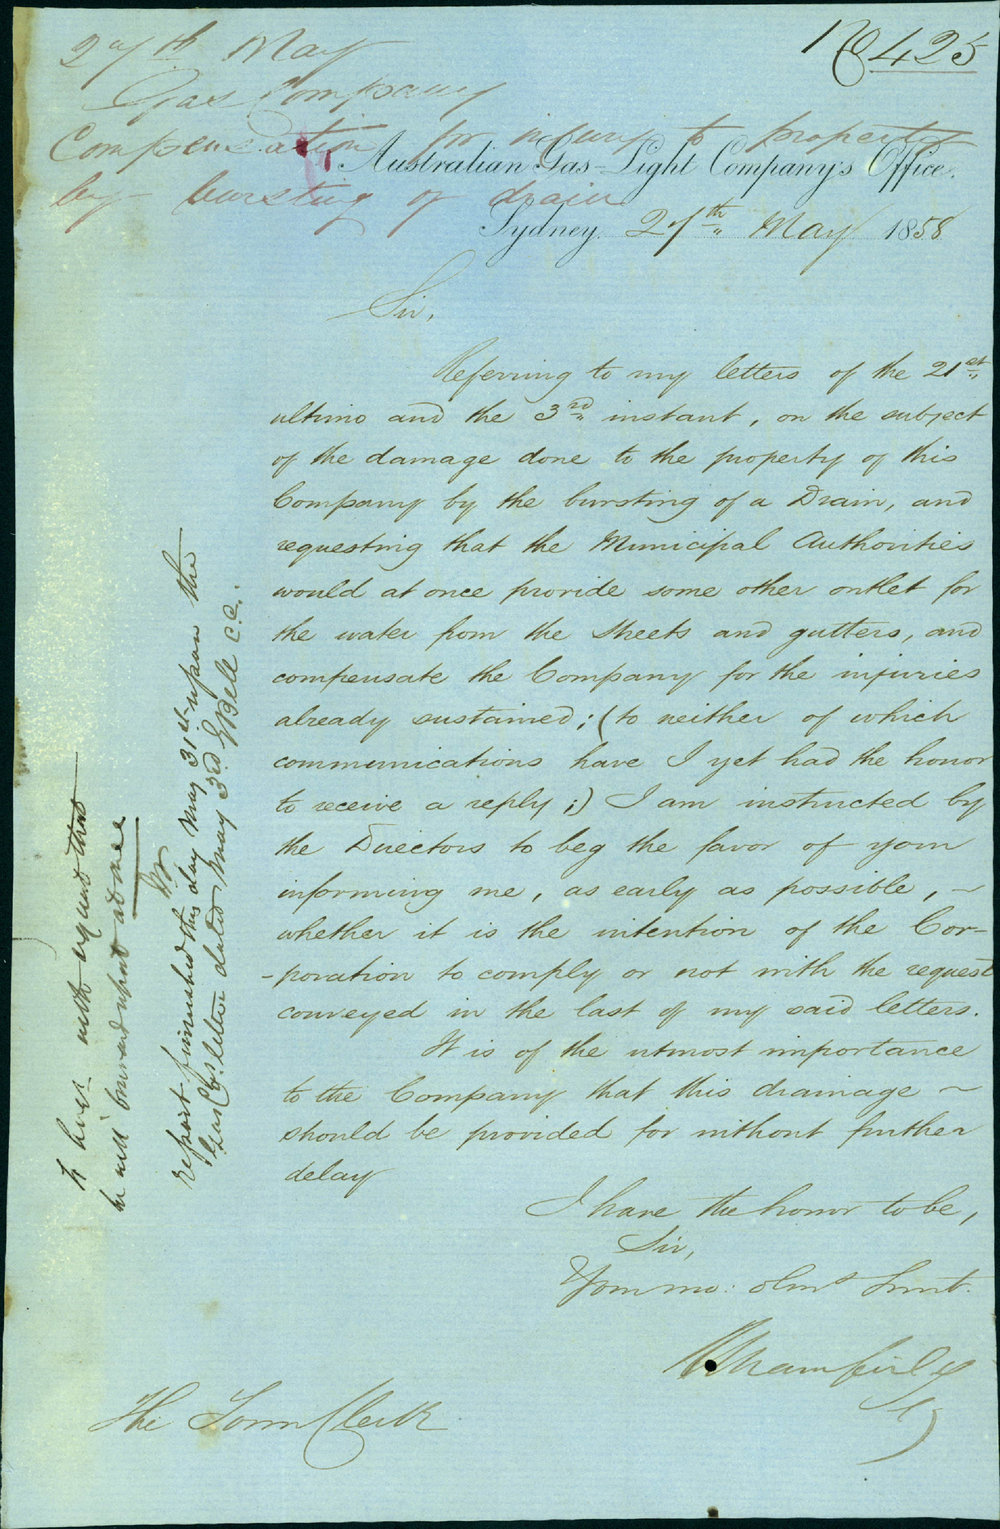 No 425
27th May
Gas Company
Compensation for injury to property
by bursting of drain
Australian Gas-Light Company's Office.
Sydney, 27th May 1858
Sir,
Referring to my letters of the 21st
ultimo and the 3rd instant, on the subject
of the damage done to the property of this
Company by the bursting of a Drain, and
requesting that the Municipal Authorities
would at once provide some other outlet for
the water from the streets and gutters, and
compensate the Company for the injuries
already sustained; (to neither of which
communications have I yet had the honor
to receive a reply;) I am instructed by
the Directors to beg the favor of your
informing me, as early as possible, ~
whether it is the intention of the Cor-
-poration to comply or not with the request
conveyed in the last of my said letters.
It is of the utmost importance
to the Company that this drainage ~
should be provided for without further
delay
I have the honor to be,
Sir,
Your mo: obnt Servt.
The Town Clerk
with request that
he will at once
report furnished this day May 31st upon the
Gas Cos letter dated May 3rd. E Bell C.E.